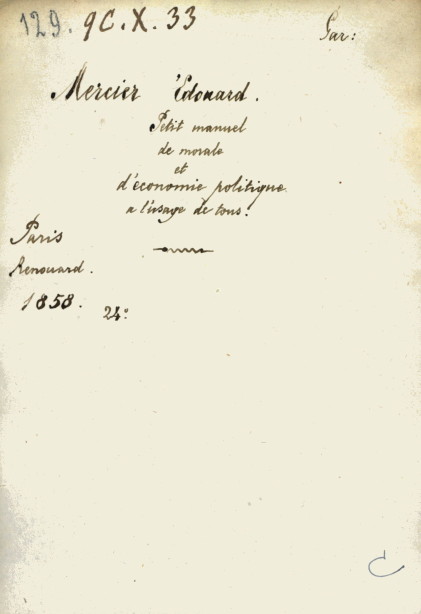 129. 9C.X.33
Par:
Mercier Edouard.
Petit manuel
de morale
et
d'économie politique
a l'usage de tous.
Paris
Renouard.
1858.
24°
C